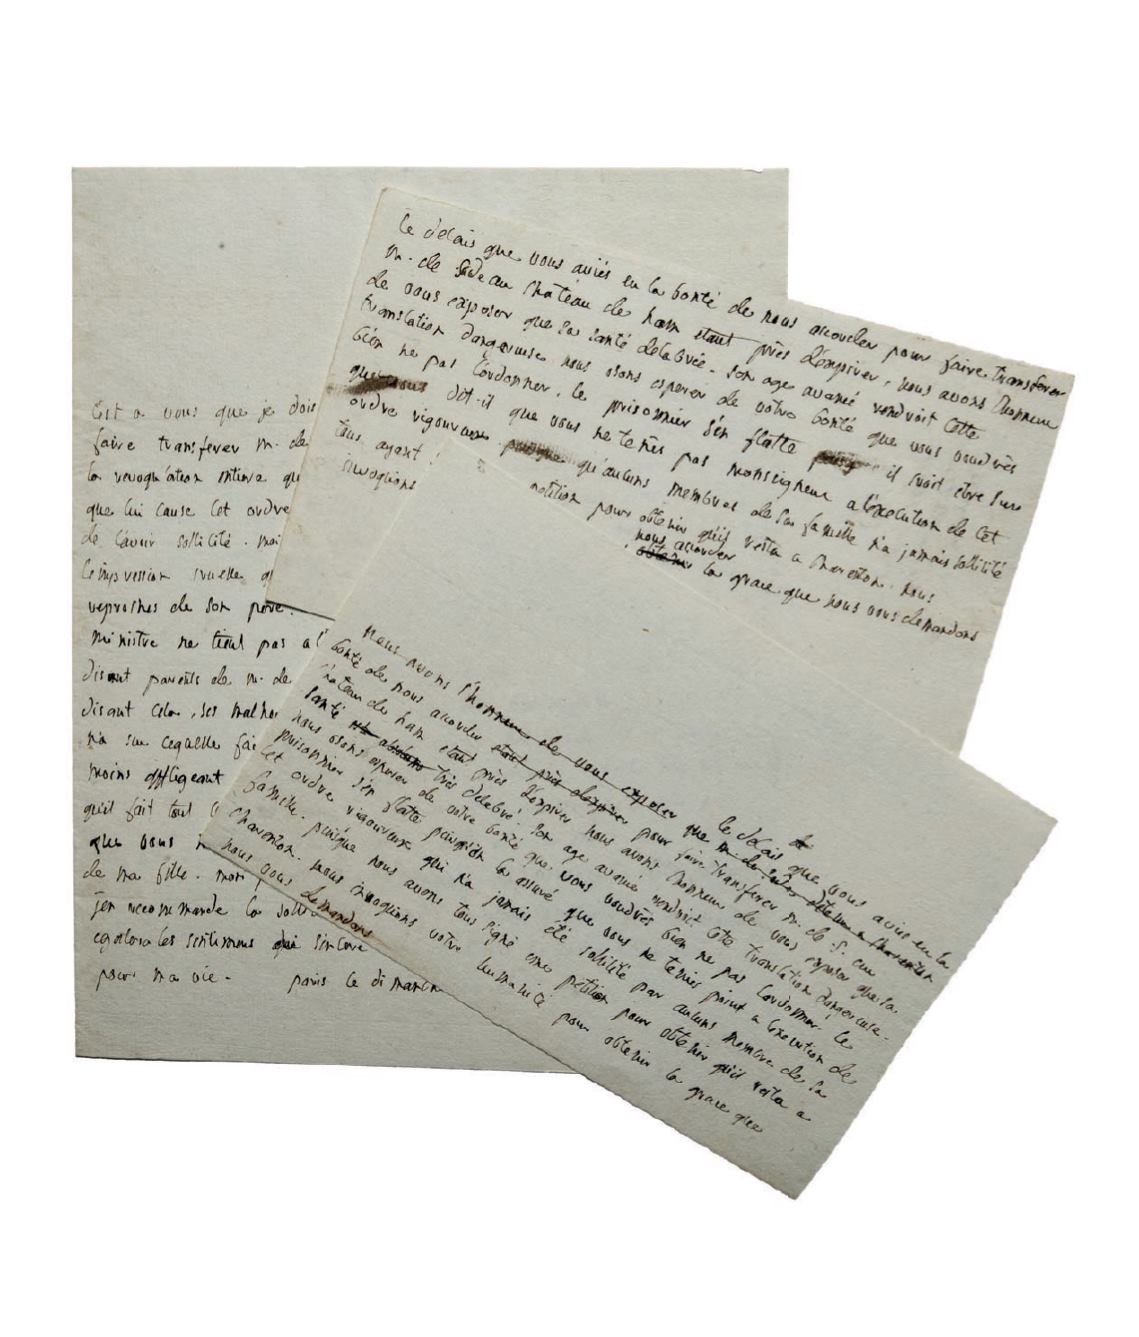 Cest a vous que je dois
faire transferer m. de
la revoquation entiere qu
que lui cause cet ordre
de l'avoir sollicité. mai
l'impression cruelle q
reproches de son pere.
ministre ne tient pas a l
disant parents de m. de
disant cela, ses malhe
n'a su cequelle fai
moins affligeant
qu'il fait tout
que vous n
de ma fille. mon
jen recommande la
egalera les sentimens qui sincere
pour ma vie. paris ce dimanch
le delais que vous aviés eu la bonté de nous accorder pour faire transferer
m. de Sade au chateau de ham etant près d'expirer, nous avons l'honneur
de vous exposer que sa santé delabrée. son age avancé rendroit cette
translation dangereuse nous osons esperer de votre bonté que vous voudrés
bien ne pas l'ordonner. le prisonnier s'en flatte il croit etre sure
dit-il que vous ne tenés pas monseigneur a l'execution de cet
ordre rigoureux. qu'aucuns membres de sa famille n'a jamais sollicité
tous ayant petition pour obtenir qu'il resta a charenton. nous
nous accorder
invoquons obtenir la grace que nous vous demandons
nous avons l'honneur de vous exposer que le delais que vous aviés eu la
bonté de nous accorder pour faire transferer m. de S. au
chateau de ham etant près d'expirer nous avons l'honneur de vous exposer que sa
santé très delabré. son age avancé rendroit cette translation dangereuse.
nous osons esperer de votre bonté que vous voudrés bien ne pas l'ordonner. le
prisonnier s'en flatte assuré que vous ne teniés point a l'execution de
cet ordre rigoureux qui n'a jamais été sollicité par aucuns membre de sa
famille. puisque nous avons tous signé une petition pour obtenir qu'il resta a
charenton. nous invoquons votre humanité pour obtenir la grace que
nous vous demandons